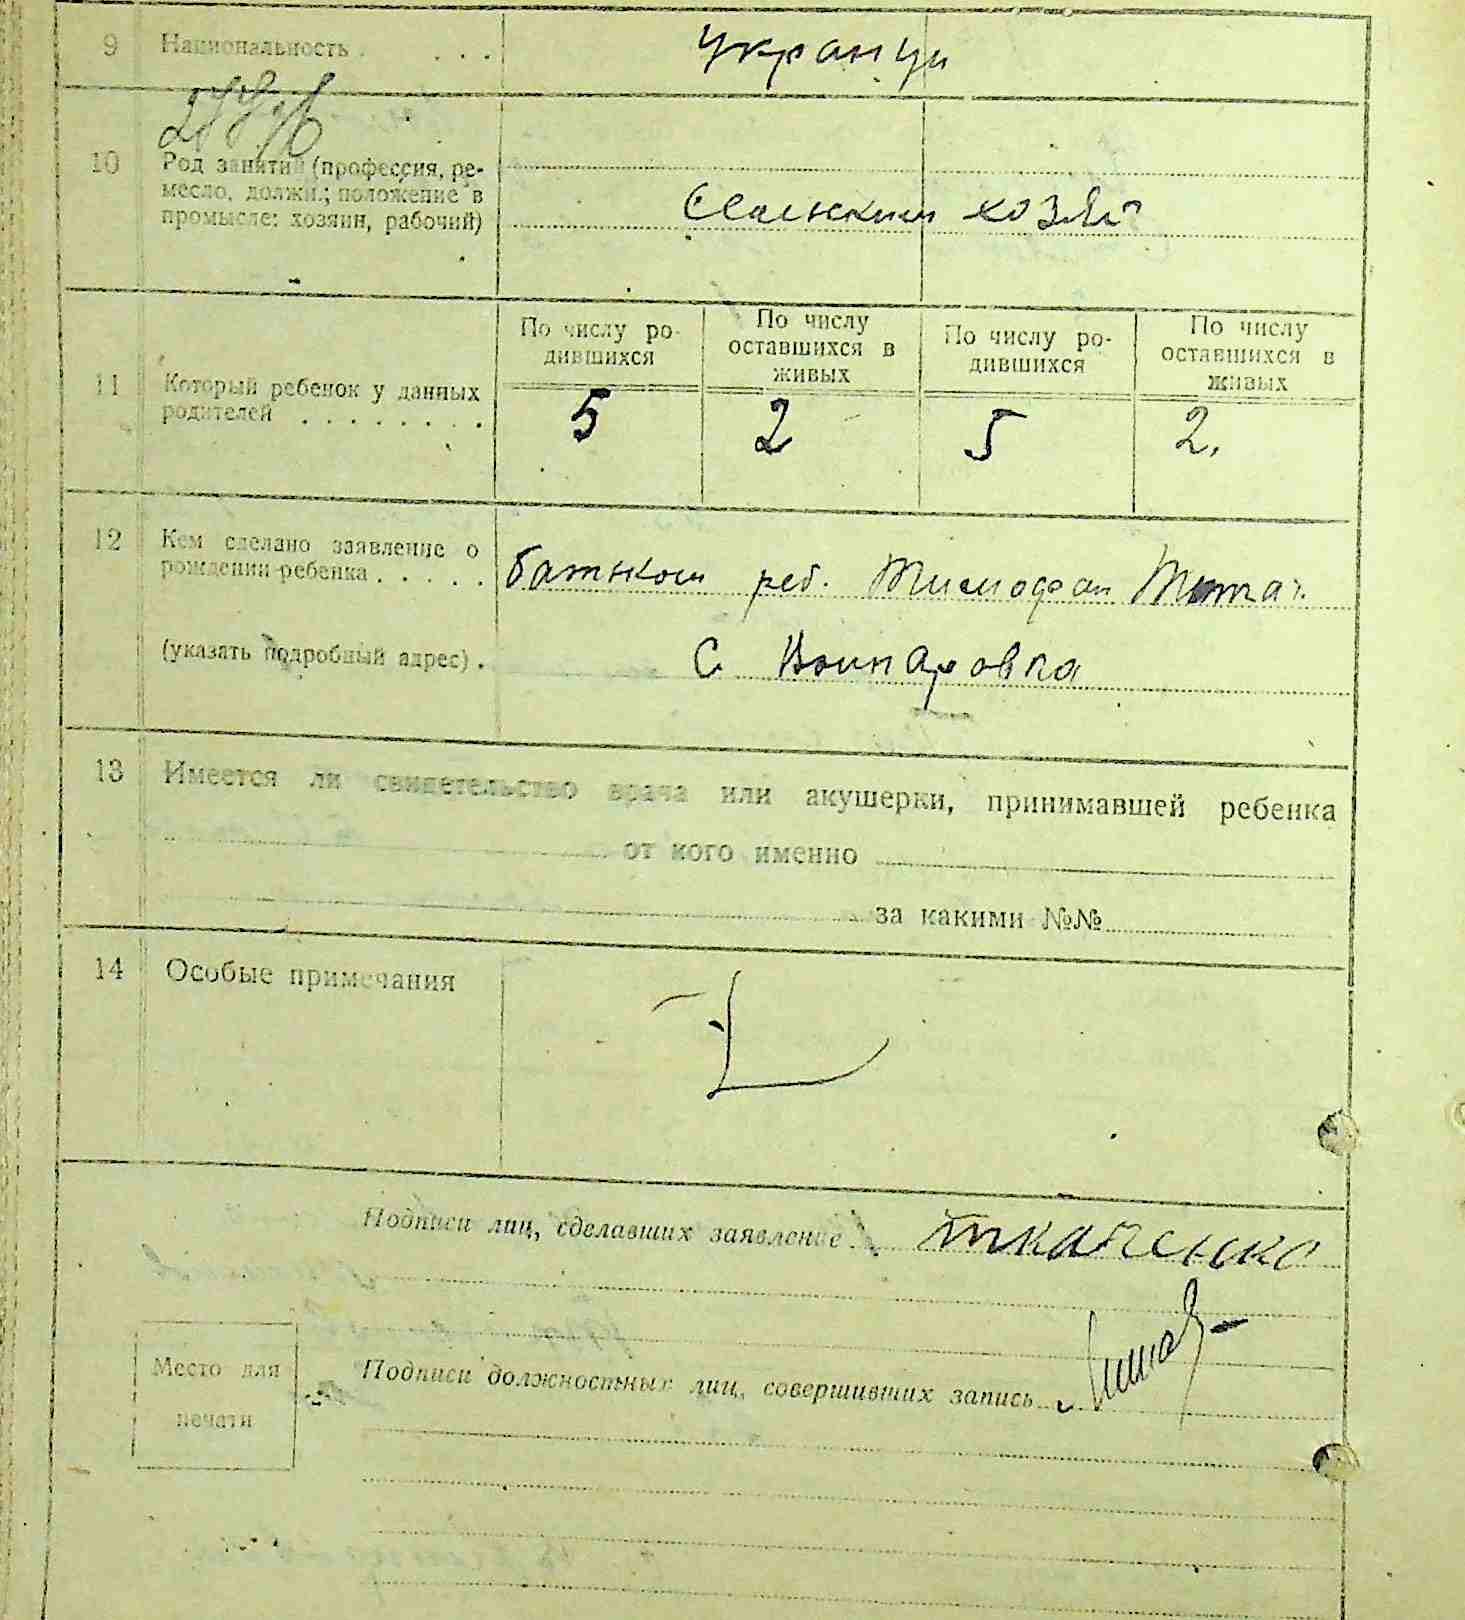 9 Национальность . . . . укранци
10 Род занятий (профессия, ре-
месло, должн.; положение в
промысле: хозяин, рабочий)
хозяй
По числу ро-
дившихся
По числу
оставшихся в
живых
По числу ро-
дившихся
По числу
оставшихся в
живых
11 Который ребенок у данных
родителей . . . . . . . .
5 2 5 2.
12 Кем сделано заявление о
рождении ребенка . . . . .
батьком реб.
(указать подробный адрес) .
С.
13 Имеется ли свидетельство врача или акушерки, принимавшей ребенка
от кого именно
за какими №№
14 Особые примечания
Подписи лиц, сделавших заявление ткаченко
Место для
печати
Подписи должностных лиц, совершивших запись